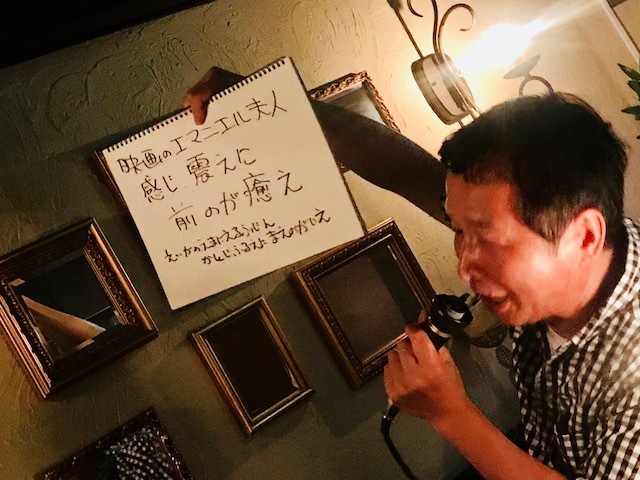 映画のエマニエル夫人
感じ、震えに
前のが癒え
えいがのえまにえるふじん
かんじふるえに まえのがいえ